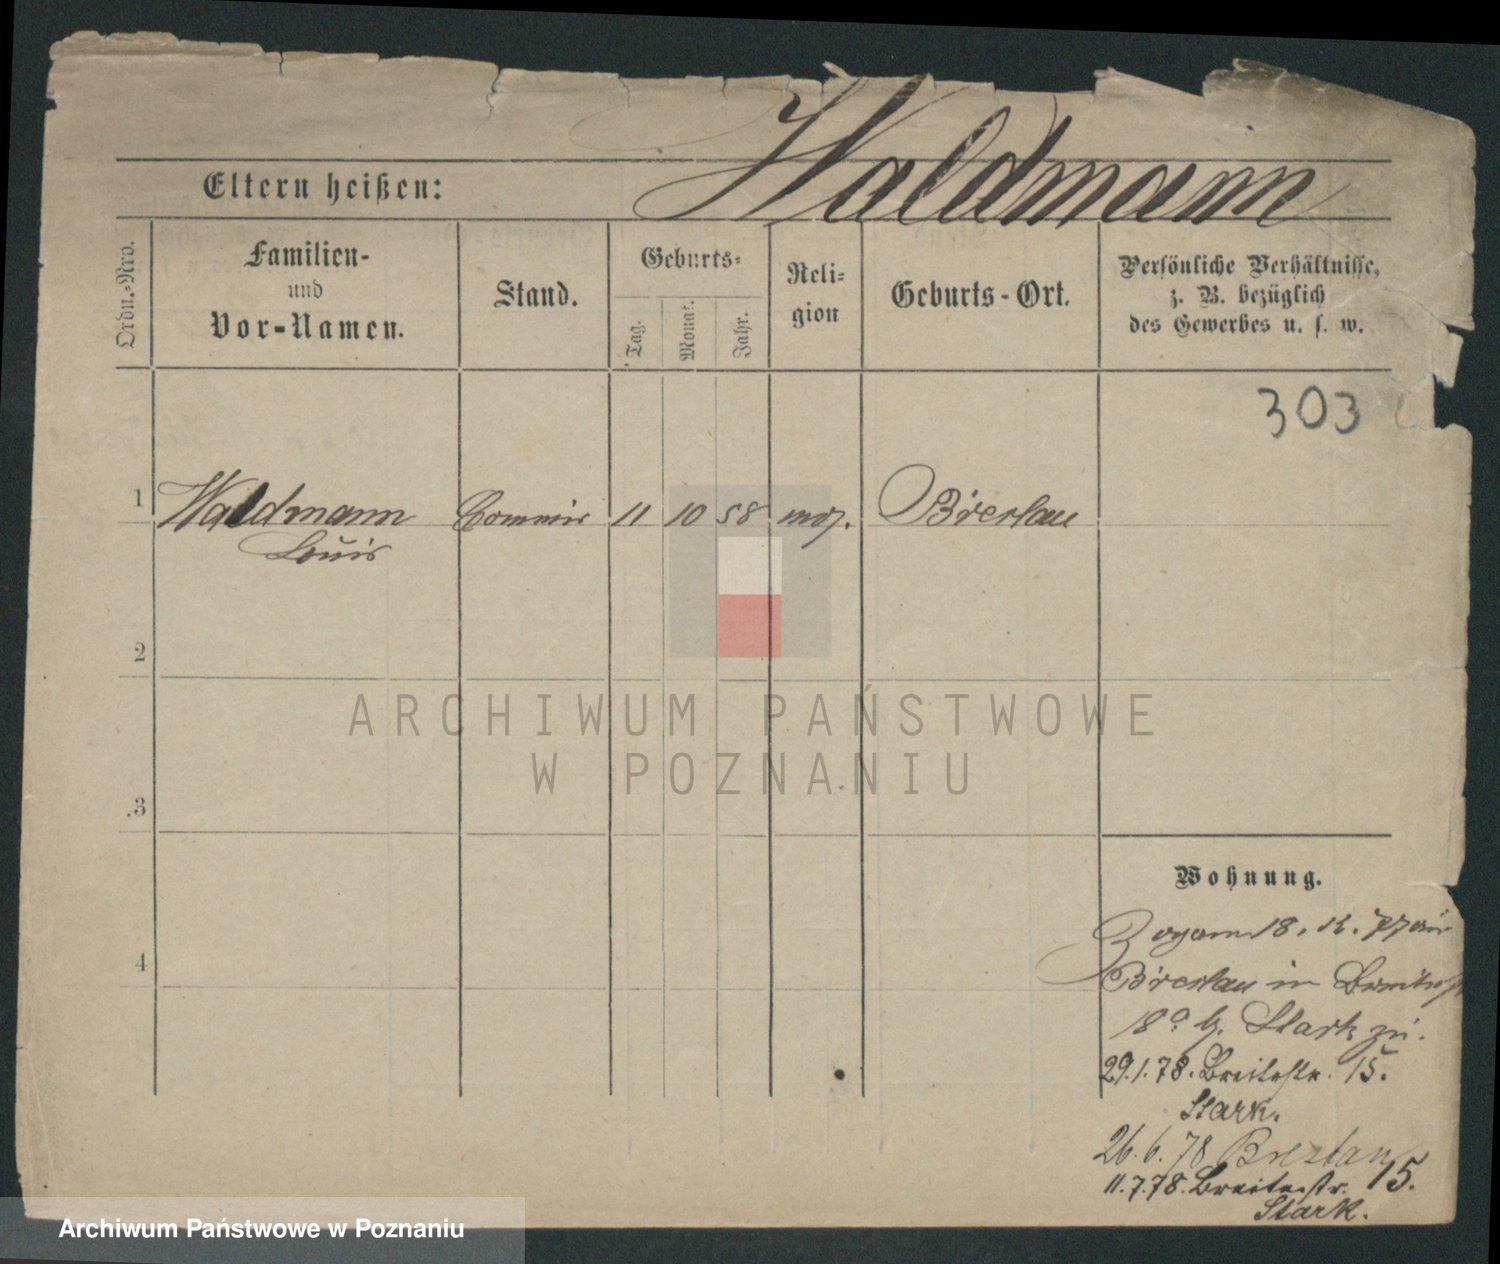 Waldmann
Eltern heißen:
Ordn.-Nro.
Familien-
und
Vor-Namen.
Stand.
Geburts-
Tag.
Monat.
Jahr.
Reli-
gion
Geburts-Ort.
Persönliche Verhältnisse,
z. B. bezüglich
des Gewerbes u. s. w.
303
1 Waldmann Commis 11 10 58 mos. Breslau
Louis
2
3
4
Wohnung.
Zog am 18. 12. 77 aus
Breslau in Breitestr
18a b. Stark zu.
29.1.78. Breitestr. 15.
Stark.
26.6.78 Breslau
11.7.78. Breitestr. 15.
Stark.
ARCHIWUM PAŃSTWOWE
W POZNANIU
Archiwum Państwowe w Poznaniu